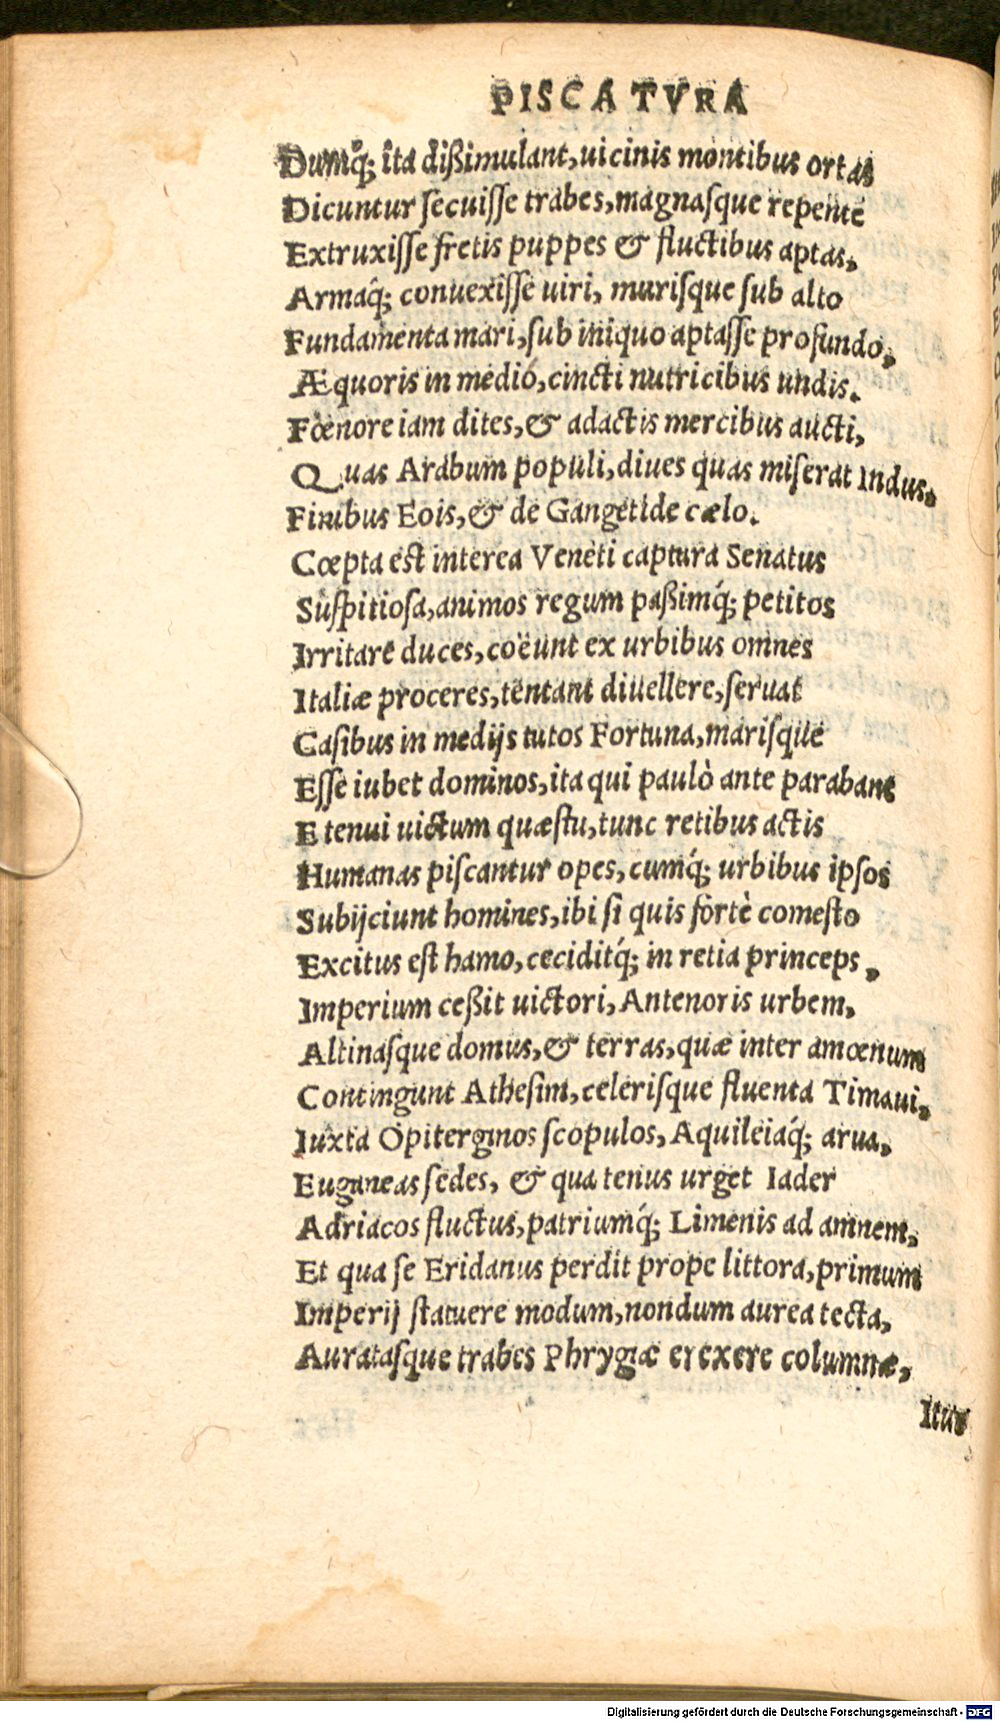 PISCATVRA
Dumq́; ita dißimulant, uicinis montibus ortas
Dicuntur secuisse trabes, magnasque repente
Extruxisse fretis puppes & fluctibus aptas,
Armaq́; conuexisse uiri, murisque sub alto
Fundamenta mari, sub iniquo aptasse profundo,
Æquoris in medio, cincti nutricibus undis.
Fœnore iam dites, & adactis mercibus aucti,
Quas Arabum populi, diues quas miserat Indus,
Finibus Eois, & de Gangetide cælo.
Cœpta est interea Veneti captura Senatus
Suspitiosa, animos regum paßimq́; petitos
Irritare duces, coëunt ex urbibus omnes
Italiæ proceres, tentant diuellere, seruat
Casibus in medijs tutos Fortuna, marisque
Esse iubet dominos, ita qui paulò ante parabant
E tenui uictum quæstu, tunc retibus actis
Humanas piscantur opes, cumq́; urbibus ipsos
Subijciunt homines, ibi si quis fortè comesto
Excitus est hamo, ceciditq́; in retia princeps,
Imperium ceßit uictori, Antenoris urbem,
Altinasque domus, & terras, quæ inter amœnum
Contingunt Athesim, celerisque fluenta Timaui,
Iuxta Opiterginos scopulos, Aquileiaq́; arua,
Euganeas sedes, & qua tenus urget Iader
Adriacos fluctus, patriumq́; Limenis ad amnem,
Et qua se Eridanus perdit prope littora, primum
Imperij statuere modum, nondum aurea tecta,
Auratasque trabes Phrygiæ erexere columnæ,
Itur
Digitalisierung gefördert durch die Deutsche Forschungsgemeinschaft - DFG